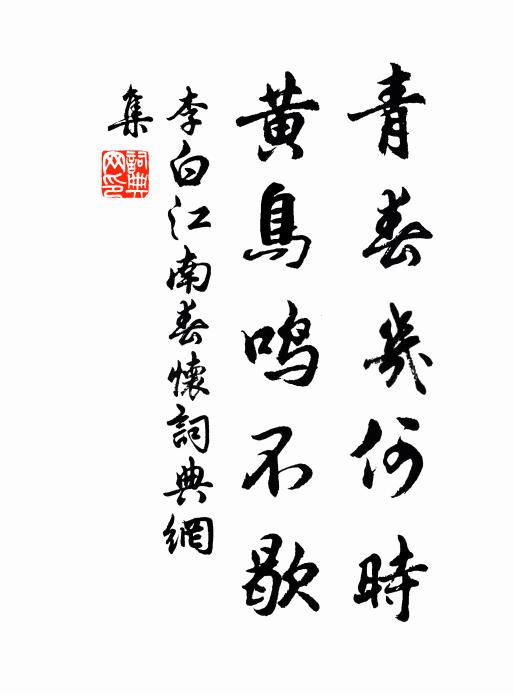 青春幾何時
黃鳥鳴不歇
李白江南春懷詞典網
集
詞典
网印